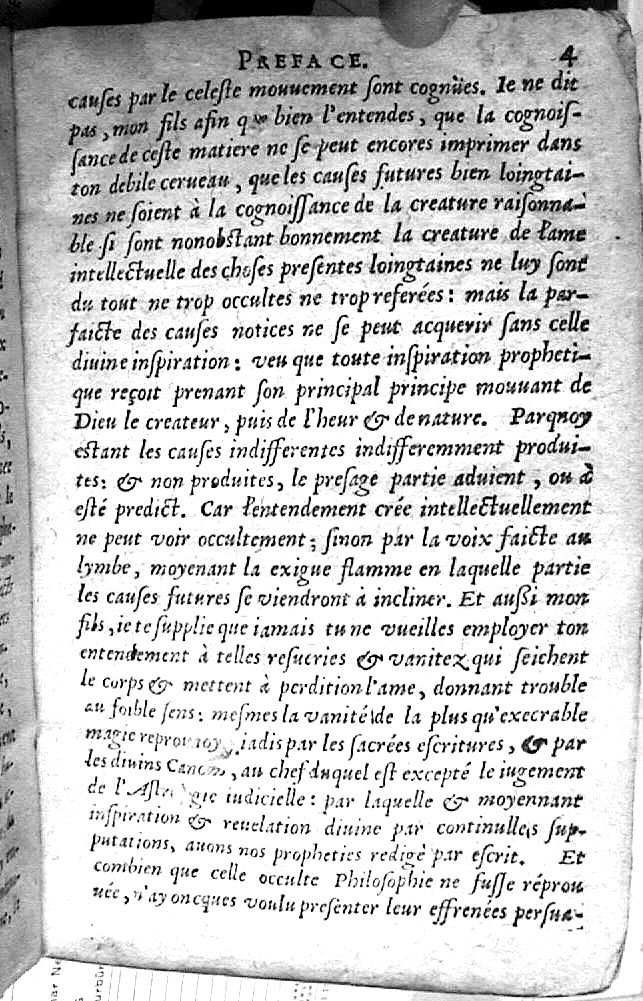 PREFACE. 4
causes par le celeste mouuement sont cognües. Ie ne dit
pas, mon fils afin que bien l'entendes, que la cognois-
sance de ceste matiere ne se peut encores imprimer dans
ton debile cerueau, que les causes futures bien loingtai-
nes ne soient à la cognoissance de la creature raisonna-
ble si sont nonobstant bonnement la creature de l'ame
intellectuelle des choses presentes loingtaines ne luy sont
du tout ne trop occultes ne trop referées: mais la par-
faicte des causes notices ne se peut acquerir sans celle
diuine inspiration: veu que toute inspiration propheti-
que reçoit prenant son principal principe mouuant de
Dieu le createur, puis de l'heur & de nature. Parquoy
estant les causes indifferentes indifferemment produi-
tes: & non produites, le presage partie aduient, ou à
esté predict. Car l'entendement crée intellectuellement
ne peut voir occultement; sinon par la voix faicte au
lymbe, moyenant la exigue flamme en laquelle partie
les causes futures se viendront à incliner. Et aussi mon
fils, ie te supplie que iamais tu ne vueilles employer ton
entendement à telles resueries & vanitez qui seichent
le corps & mettent à perdition l'ame, donnant trouble
au foible sens: mesmes la vanité de la plus qu'execrable
magie iadis par les sacrées escritures, & par
les diuins Canons, au chef duquel est excepté le iugement
de l'Astrologie iudicielle: par laquelle & moyennant
inspiration & reuelation diuine par continulles sup-
putations, auons nos propheties redigé par escrit. Et
combien que celle occulte Philosophie ne fusse réprou
uée, n'ay oncques voulu presenter leur effrenées persua-